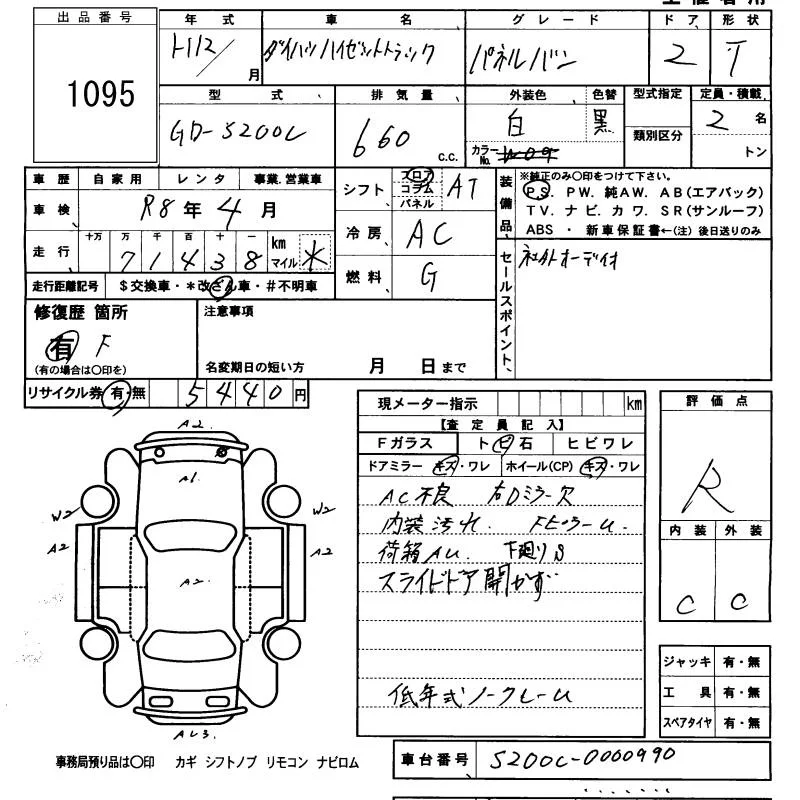 出品番号
1095
年式
H12/月
車名
ダイハツハイゼットトラック
グレード
パネルバン
ドア
2
形状
T
型式
GD-S200C
排気量
660 c.c.
外装色
白
色替
黒
カラーNo.
W09
型式指定
類別区分
定員・積載
2 名
トン
車歴 自家用 レンタ 事業.営業車
車検 R8年4月
走行 十万 万 千 百 十 一
7 1 4 3 8 km マイル *
走行距離記号 $交換車・*改ざん車・#不明車
シフト フロア コラム パネル AT
冷房 AC
燃料 G
装備品
※純正のみ〇印をつけて下さい。
P.S. P.W. 純A.W. A.B(エアバック)
T.V. ナビ. カワ. S.R(サンルーフ)
ABS ・ 新車保証書←(注) 後日送りのみ
セールスポイント、
社外オーディオ
修復歴 箇所
有 F
(有の場合は〇印を)
注意事項
名変期日の短い方 月 日まで
リサイクル券 有・無 5440円
現メーター指示 km
【査定員記入】
Fガラス ト ビ 石 ヒビワレ
ドアミラー キズ・ワレ ホイール(CP) キズ・ワレ
AC不良 右Dミラー欠
内装汚れ
荷箱AU 下廻りS
スライドドア開かず
低年式ノークレーム
評価点
R
内装 外装
C C
ジャッキ 有・無
工具 有・無
スペアタイヤ 有・無
A2.
A1.
W2 W2
A2 A2
A2.
AU3.
事務局預り品は〇印 カギ シフトノブ リモコン ナビロム
車台番号 S200C-0000990